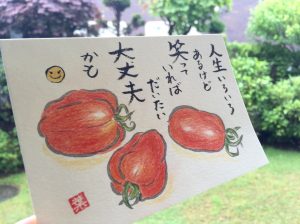 人生いろいろ
あるけど
笑って
いれば
だいたい
大丈夫
かも
葉